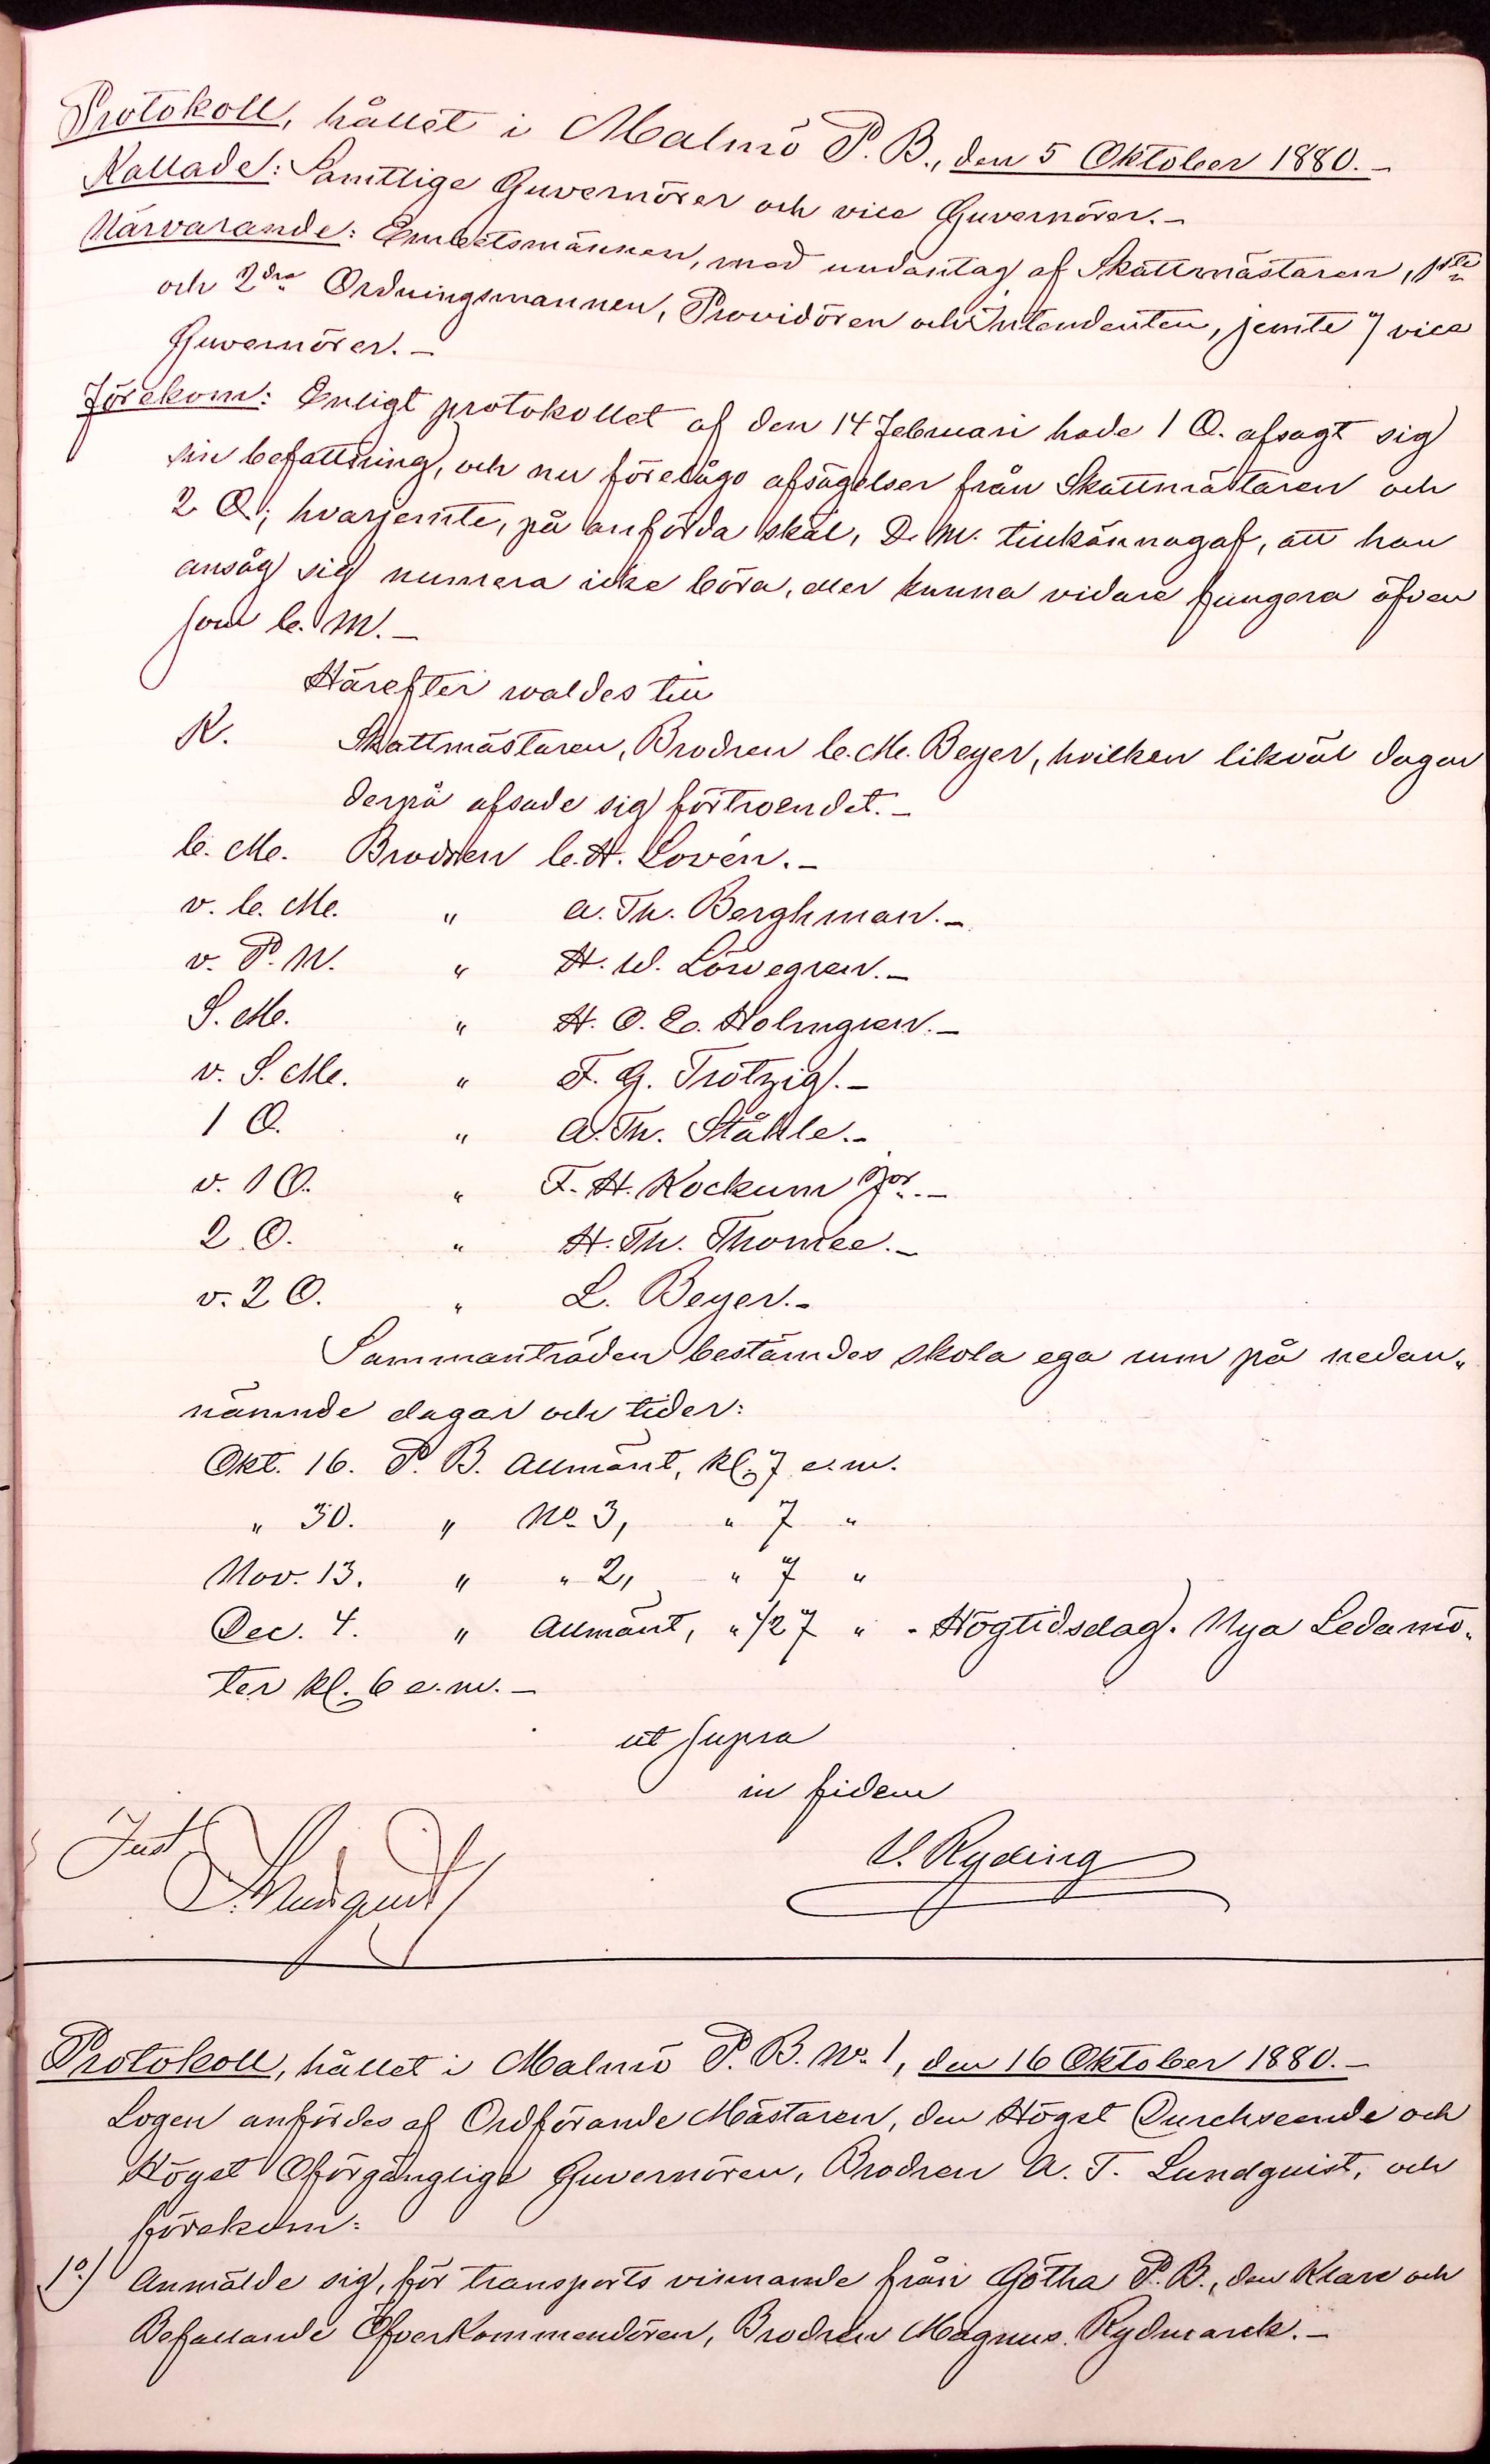 Protokoll, hållet i Malmö P. B., den 5 Oktober 1880.–
Kallade: Samtlige Guvernörer och vice Guvernörer.–
Närvarande: Embetsmännen, med undantag af Skattmästaren, 1ste
och 2dra Ordningsmannen, Providören och Intendenten, jemte 7 vice
Guvernörer.–
Förekom: Enligt protokollet af den 14 Februari hade 1 O. afsagt sig
sin befattning, och nu förelågo afsägelser från Skattmästaren och
2 O; hvarjemte, på anförda skäl, D. M. tillkännagaf, att han
ansåg sig numera icke böra, eller kunna vidare fungera äfven
som C. M.–
Härefter waldes till
K. Skattmästaren, Brodren C. M. Beyer, hvilken likväl dagen
derpå afsade sig förtroendet.–
C. M. Brodren C. H. Lovén.–
v. C. M. " A. Th. Berghman.–
v. P. M. " H. W. Löwegren.–
S. M. " H. O. E. Holmgren.–
v. S. M. " F. G. Trotzig.–
1 O. " A. Th. Ståhle.–
v. 1 O. " F. H. Kockum Jor.–
2 O. " H. Th. Thomée.–
v. 2 O. " L. Beyer.–
Sammanträden bestämdes skola ega rum på nedan„
nämnde dagar och tider:
Okt. 16. P. B. Allmänt, kl. 7 e.m.
" 30. " No 3, " 7 "
Nov. 13. " " 2, " 7 "
Dec. 4. " Allmänt, " 1/2 7 " - Högtidsdag. Nya Ledamö„
ter kl. 6 e.m.–
ut supra
in fidem
Just. V. Ryding
Lundquist
Protokoll, hållet i Malmö P. B. No 1, den 16 Oktober 1880.–
Logen anfördes af Ordförande Mästaren, den Högst Durchseende och
Högst Oförgänglige Guvernören, Brodren A. T. Lundquist, och
förekom:
1o) Anmälde sig, för transports vinnande från Götha P. B., den Klare och
Befallande Öfverkommendören, Brodren Magnus Rydmarck.–